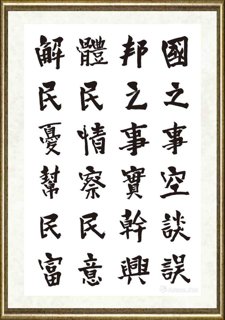 國之事空談誤
邦之事實幹興
體民情察民意
解民憂幫民富